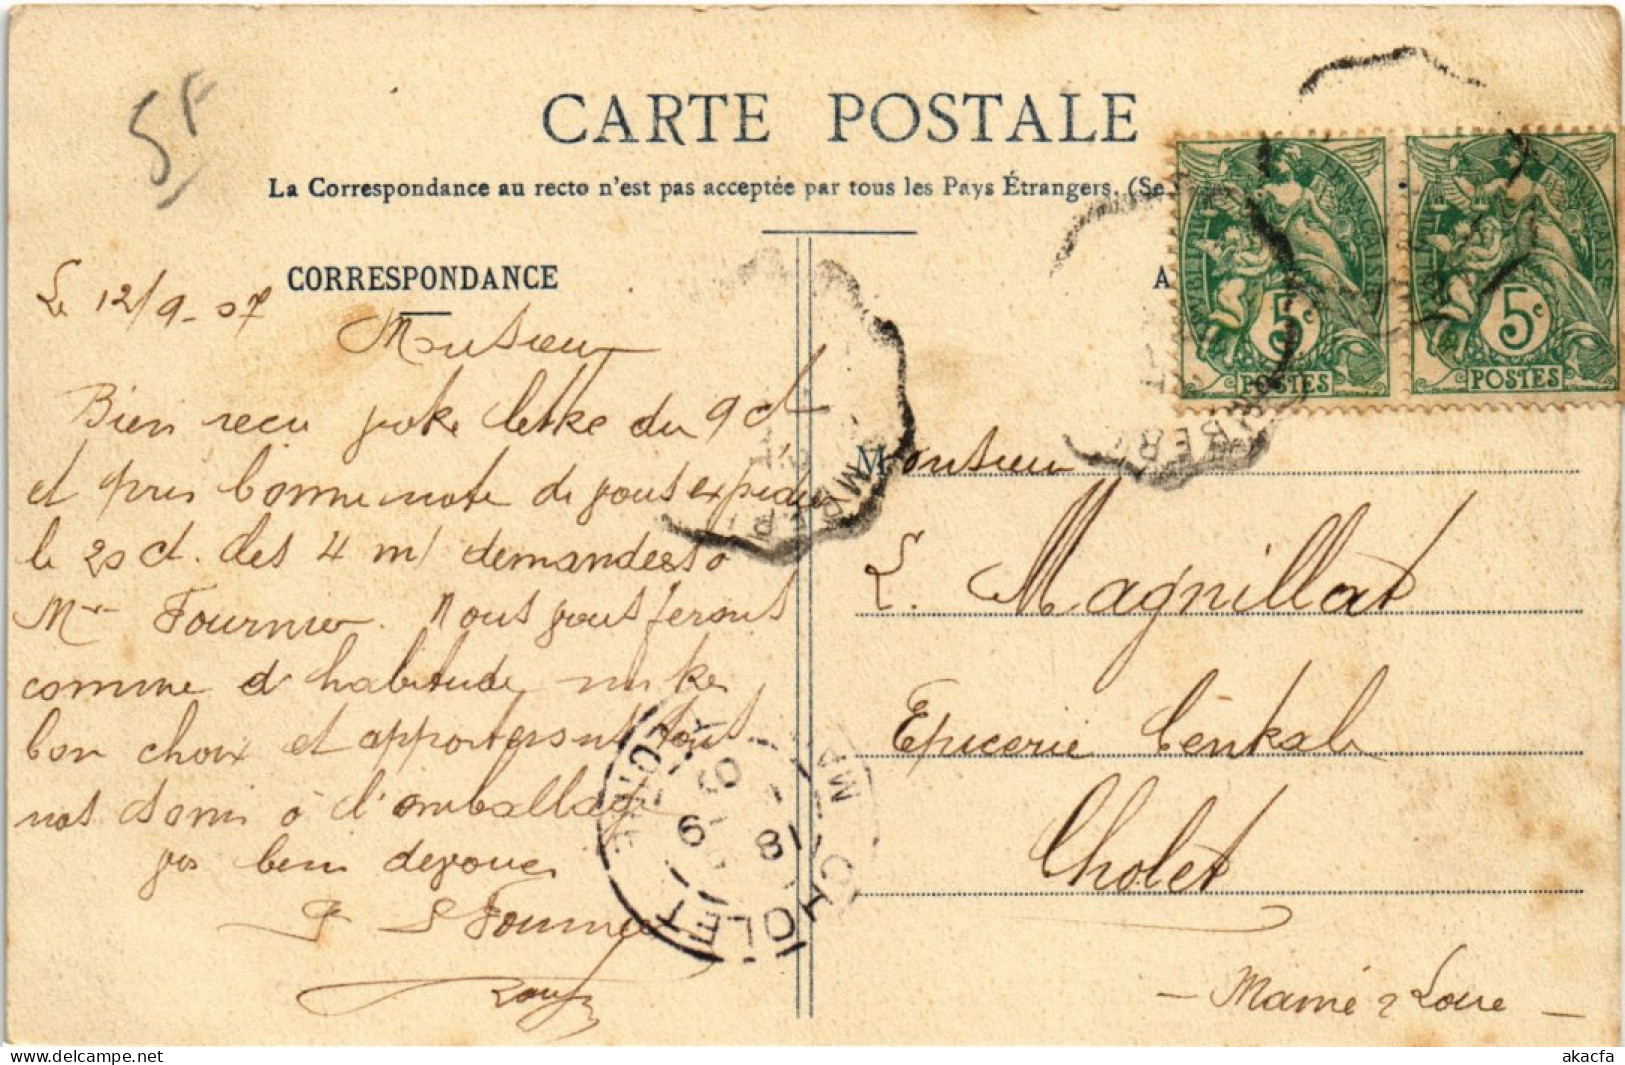 5F
CARTE POSTALE
La Correspondance au recto n'est pas acceptée par tous les Pays Étrangers. (Se
CORRESPONDANCE
A
Le 12/9-07
Monsieur
Bien reçu votre lettre du 9 ct
et pris bonne note de vous expédier
le 20 ct. des 4 m/ demandés à
Mr Fournier. Nous vous ferons
comme d'habitude notre
bon choix et apporterons tous
nos soins à l'emballage
vos bien dévoués
P. Fournier
RÉPUBLIQUE FRANÇAISE
5c
POSTES
RÉPUBLIQUE FRANÇAISE
5c
POSTES
Monsieur
L. Magnillat
Epicerie Centrale
Cholet
- Maine & Loire -
CHOLET
akacfa